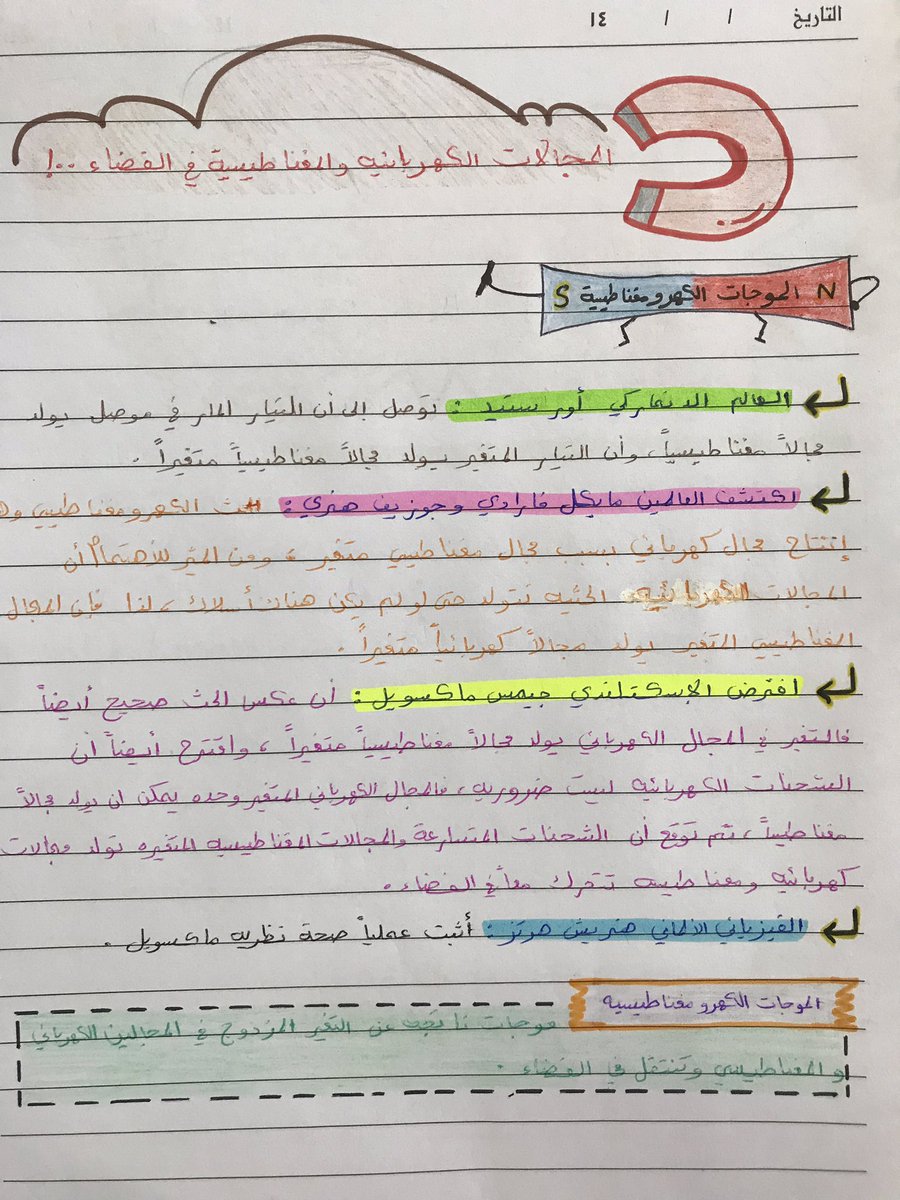 التاريخ / / ١٤
المجالات الكهربائيه والمغناطيسية في الفضاء ..!
N الموجات الكهرومغناطيسية S
العالم الدنماركي أورستيد : توصل الى أن التيار المار في موصل يولد
مجالاً مغناطيسياً، وأن التيار المتغير يولد مجالاً مغناطيسياً متغيراً .
اكتشف العالمين مايكل فارادي وجوزيف هنري : الحث الكهرومغناطيسي وهو
إنتاج مجال كهربائي بسبب مجال مغناطيسي متغير ، ومن المثير للأهتمام أن
المجالات الكهربائيه الحثيه تتولد حتى لو لم يكن هناك أسلاك ، لذا فإن المجال
المغناطيسي المتغير يولد مجالاً كهربائياً متغيراً .
افترض الإسكتلندي جيمس ماكسويل : أن عكس الحث صحيح أيضاً
فالتغير في المجال الكهربائي يولد مجالاً مغناطيسياً متغيراً ، واقترح أيضاً أن
الشحنات الكهربائيه ليست ضروريه ، فالمجال الكهربائي المتغير وحده يمكن ان يولد مجالاً
مغناطيسياً ، ثم توقع أن الشحنات المتسارعة والمجالات المغناطيسيه المتغيره تولد مجالات
كهربائيه ومغناطيسيه تتحرك معاً في الفضاء .
الفيزيائي الألماني هنريش هرتز : أثبت عملياً صحة نظريه ماكسويل .
الموجات الكهرومغناطيسيه
موجات ناتجه عن التغير المزدوج في المجالين الكهربائي
و المغناطيسي وتنتقل في الفضاء .